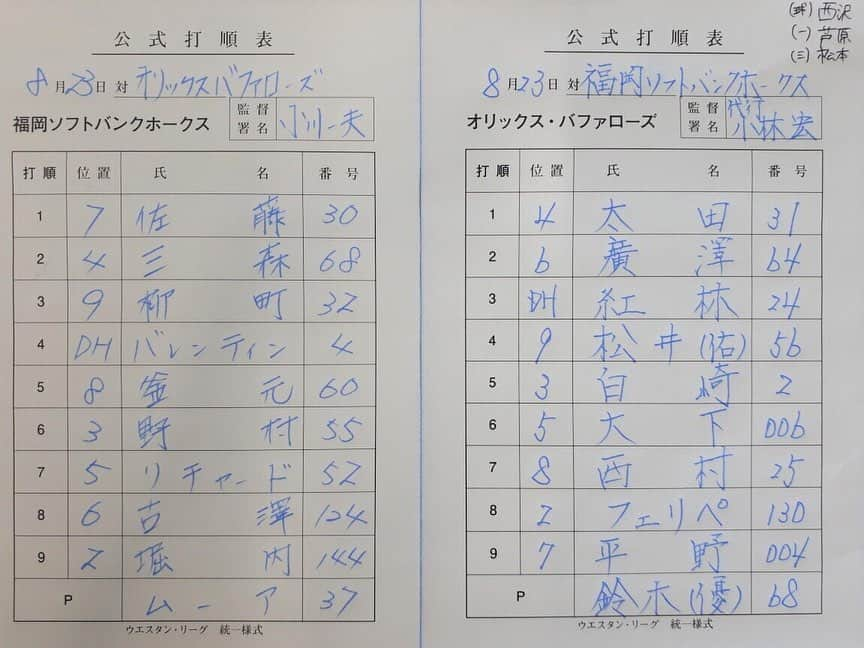 公式打順表
8月23日 対 オリックスバファローズ
福岡ソフトバンクホークス 監督署名 小川一夫
打順 位置 氏名 番号
1 7 佐藤 30
2 4 三森 68
3 9 柳町 32
4 DH バレンティン 4
5 8 釜元 60
6 3 野村 55
7 5 リチャード 52
8 6 古澤 124
9 2 堀内 144
P ムーア 37
ウエスタン・リーグ 統一様式
(球) 西沢
(一) 芦原
(三) 松本
公式打順表
8月23日 対 福岡ソフトバンクホークス
オリックス・バファローズ 監督署名 代行 小林宏
打順 位置 氏名 番号
1 4 太田 31
2 6 廣澤 64
3 DH 紅林 24
4 9 松井(佑) 56
5 3 白崎 2
6 5 大下 006
7 8 西村 25
8 2 フェリペ 130
9 7 平野 004
P 鈴木(優) 68
ウエスタン・リーグ 統一様式